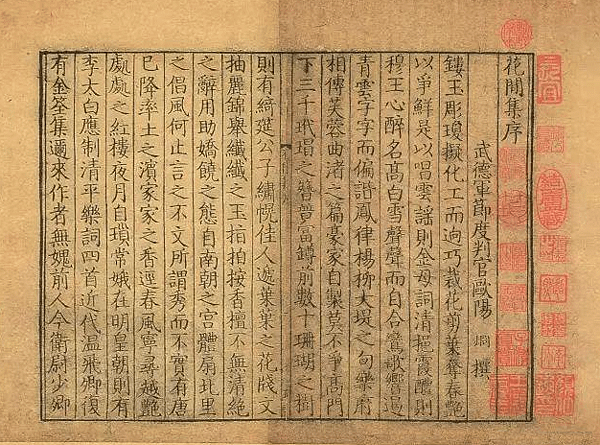 花間集序
武德軍節度判官歐陽 炯 撰
鏤玉彫瓊擬化工而逈巧裁花剪葉奪春艶
以爭鮮是以唱雲謠則金母詞清挹霞醴則
穆王心醉名高白雪聲聲而自合鸞歌響遏
青雲字字而偏諧鳳律楊柳大堤之句樂府
相傳芙蓉曲渚之篇豪家自製莫不爭高門
下三千玳瑁之簪競富罇前數十珊瑚之樹
則有綺筵公子繡幌佳人遞葉葉之花牋文
抽麗錦舉纖纖之玉指拍按香檀不無清絶
之辭用助嬌饒之態自南朝之宮體扇北里
之倡風何止言之不文所謂秀而不實有唐
已降率土之濵家家之香逕春風寧尋越艶
處處之紅樓夜月自鎖常娥在明皇朝則有
李太白應制清平樂詞四首近代溫飛卿復
有金筌集邇來作者無媿前人今衛尉少卿